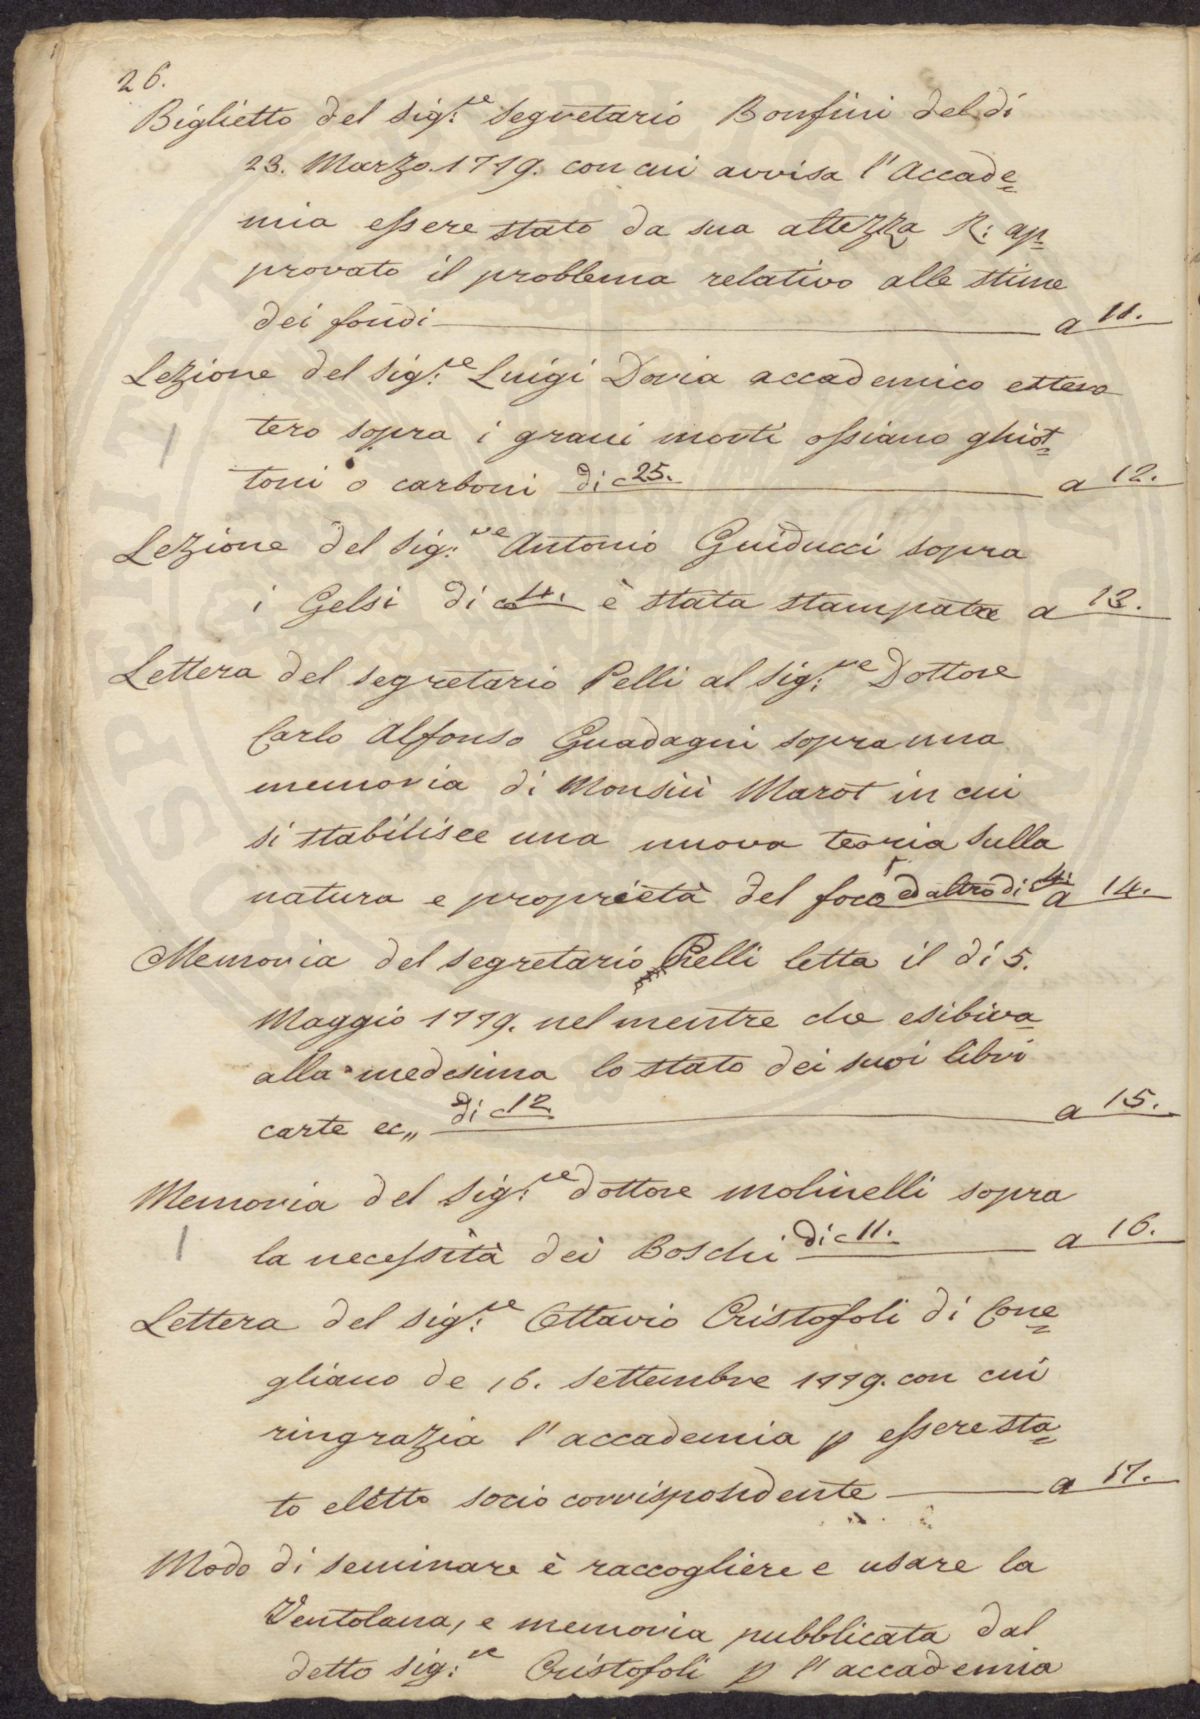 26.
Biglietto del Sig:re Segretario Bonfini del dì
23. Marzo. 1779. con cui avvisa l'Accade=
mia essere stato da sua altezza R: ap=
provato il problema relativo alle stime
dei fondi a 11.
Lezione del Sig:re Luigi Doria accademico
tero sopra i grani morti ossiano ghiot=
toni o carboni di c 25. a 12.
Lezione del Sig:re Antonio Guiducci sopra
i Gelsi di c 4. è stata stampata a 13.
Lettera del segretario Pelli al Sig:re Dottore
Carlo Alfonso Guadagni sopra una
memoria di Monsiù Marot in cui
si stabilisce una nuova teoria sulla
natura e proprietà del foco ed altro di c 4. a 14.
Memoria del segretario Pelli letta il dì 5.
Maggio 1779. nel mentre che esibiva
alla medesima lo stato dei suoi libri
carte ec,, di c 12 a 15.
Memoria del Sig:re dottore molinelli sopra
la necessità dei Boschi di c 11. a 16.
Lettera del Sig:re Ottavio Cristofoli di Cone=
gliano de 16. settembre 1779. con cui
ringrazia l'accademia p essere sta=
to eletto socio corrispondente a 17.
Modo di seminare è raccogliere e usare la
Ventolana, e memoria pubblicata dal
detto sig:re Cristofoli p l'accademia